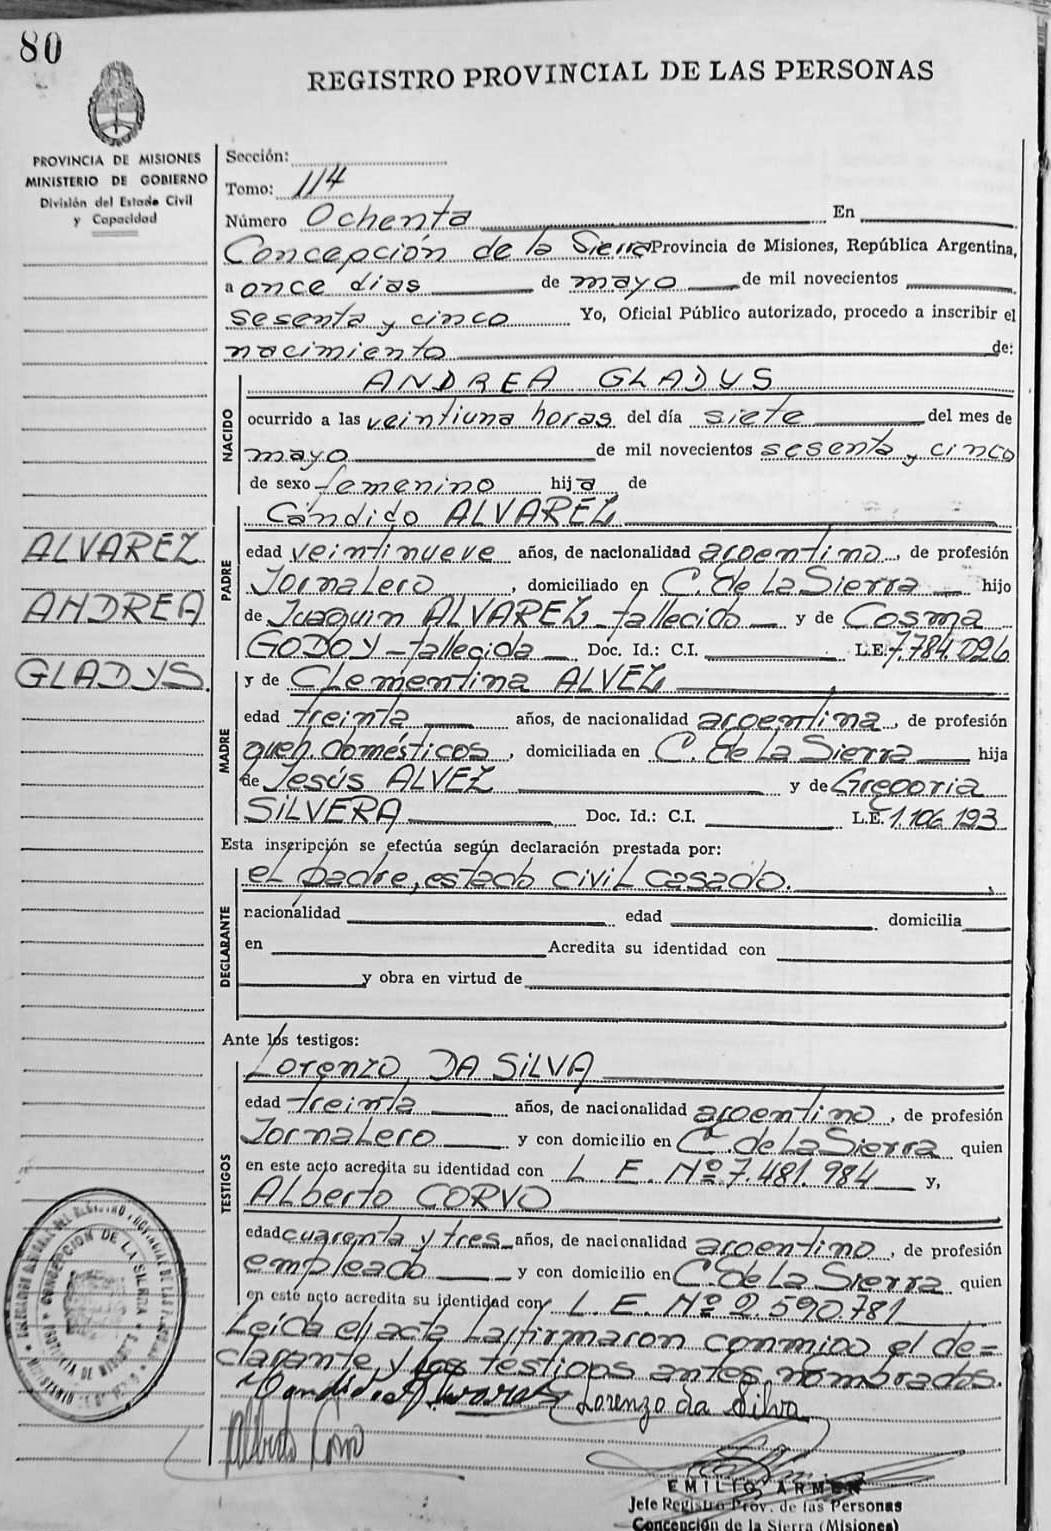 80
REGISTRO PROVINCIAL DE LAS PERSONAS
PROVINCIA DE MISIONES
MINISTERIO DE GOBIERNO
División del Estado Civil
y Capacidad
Sección:
Tomo: 114
Número Ochenta En
Concepción de la Sierra Provincia de Misiones, República Argentina,
a once dias de mayo de mil novecientos
sesenta y cinco Yo, Oficial Público autorizado, procedo a inscribir el
nacimiento de:
NACIDO
ANDREA GLADYS
ocurrido a las veintiuna horas del día siete del mes de
mayo de mil novecientos sesenta y cinco
de sexo femenino hija de
ALVAREZ
ANDREA
GLADYS.
PADRE
Cándido ALVAREZ
edad veintinueve años, de nacionalidad argentino, de profesión
Jornalero, domiciliado en C. de La Sierra hijo
de Juaquin ALVAREZ - fallecido y de Cosma
GODOY - fallecida Doc. Id.: C.I. L.E. 7.784.026
MADRE
y de Clementina ALVEZ
edad treinta años, de nacionalidad argentina, de profesión
queh. domésticos, domiciliada en C. de La Sierra hija
de Jesús ALVEZ y de Gregoria
SILVERA Doc. Id.: C.I. L.E. 1.106.193
Esta inscripción se efectúa según declaración prestada por:
DECLARANTE
el padre, estado civil casado.
nacionalidad edad domicilia
en Acredita su identidad con
y obra en virtud de
Ante los testigos:
TESTIGOS
Lorenzo DA SILVA
edad treinta años, de nacionalidad argentino, de profesión
Jornalero y con domicilio en C. de La Sierra quien
en este acto acredita su identidad con L. E. Nº 7.481.984 y,
Alberto CORVO
edad cuarenta y tres años, de nacionalidad argentino, de profesión
empleado y con domicilio en C. de La Sierra quien
en este acto acredita su identidad con L. E. Nº 2.590.781
Leída el acta la firmaron conmigo el de=
clarante y los testigos antes nombrados.
Candido Alvarez Lorenzo da Silva
Alberto Corvo
CONCEPCION DE LA SIERRA
PROVINCIA DE MISIONES
EMILIO ARMEN
Jefe Registro Prov. de las Personas
Concención de la Sierra (Misiones)